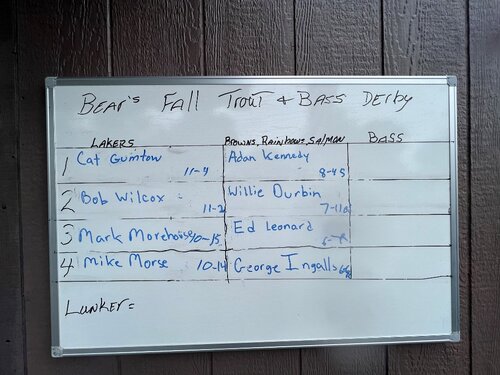 BEAR'S FALL TROUT & BASS DERBY
LAKERS BROWNS, RAINBOWS, SALMON BASS
1 Cat Gumtow 11-4 Adan Kennedy 8-45
2 Bob Wilcox 11-2 Willie Durbin
3 Mark Morehouse 10-15 Ed Leonard
4 Mike Morse 10-14 George Ingalls
LUNKER =